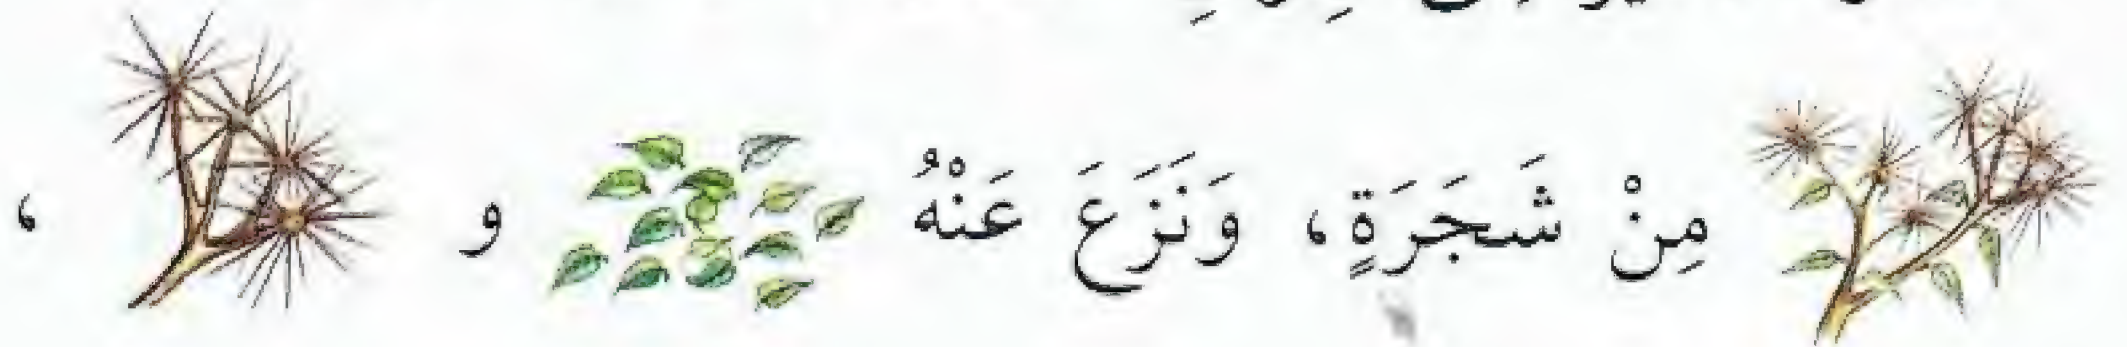 مِنْ شَجَرَةٍ، وَنَزَعَ عَنْهُ و ،